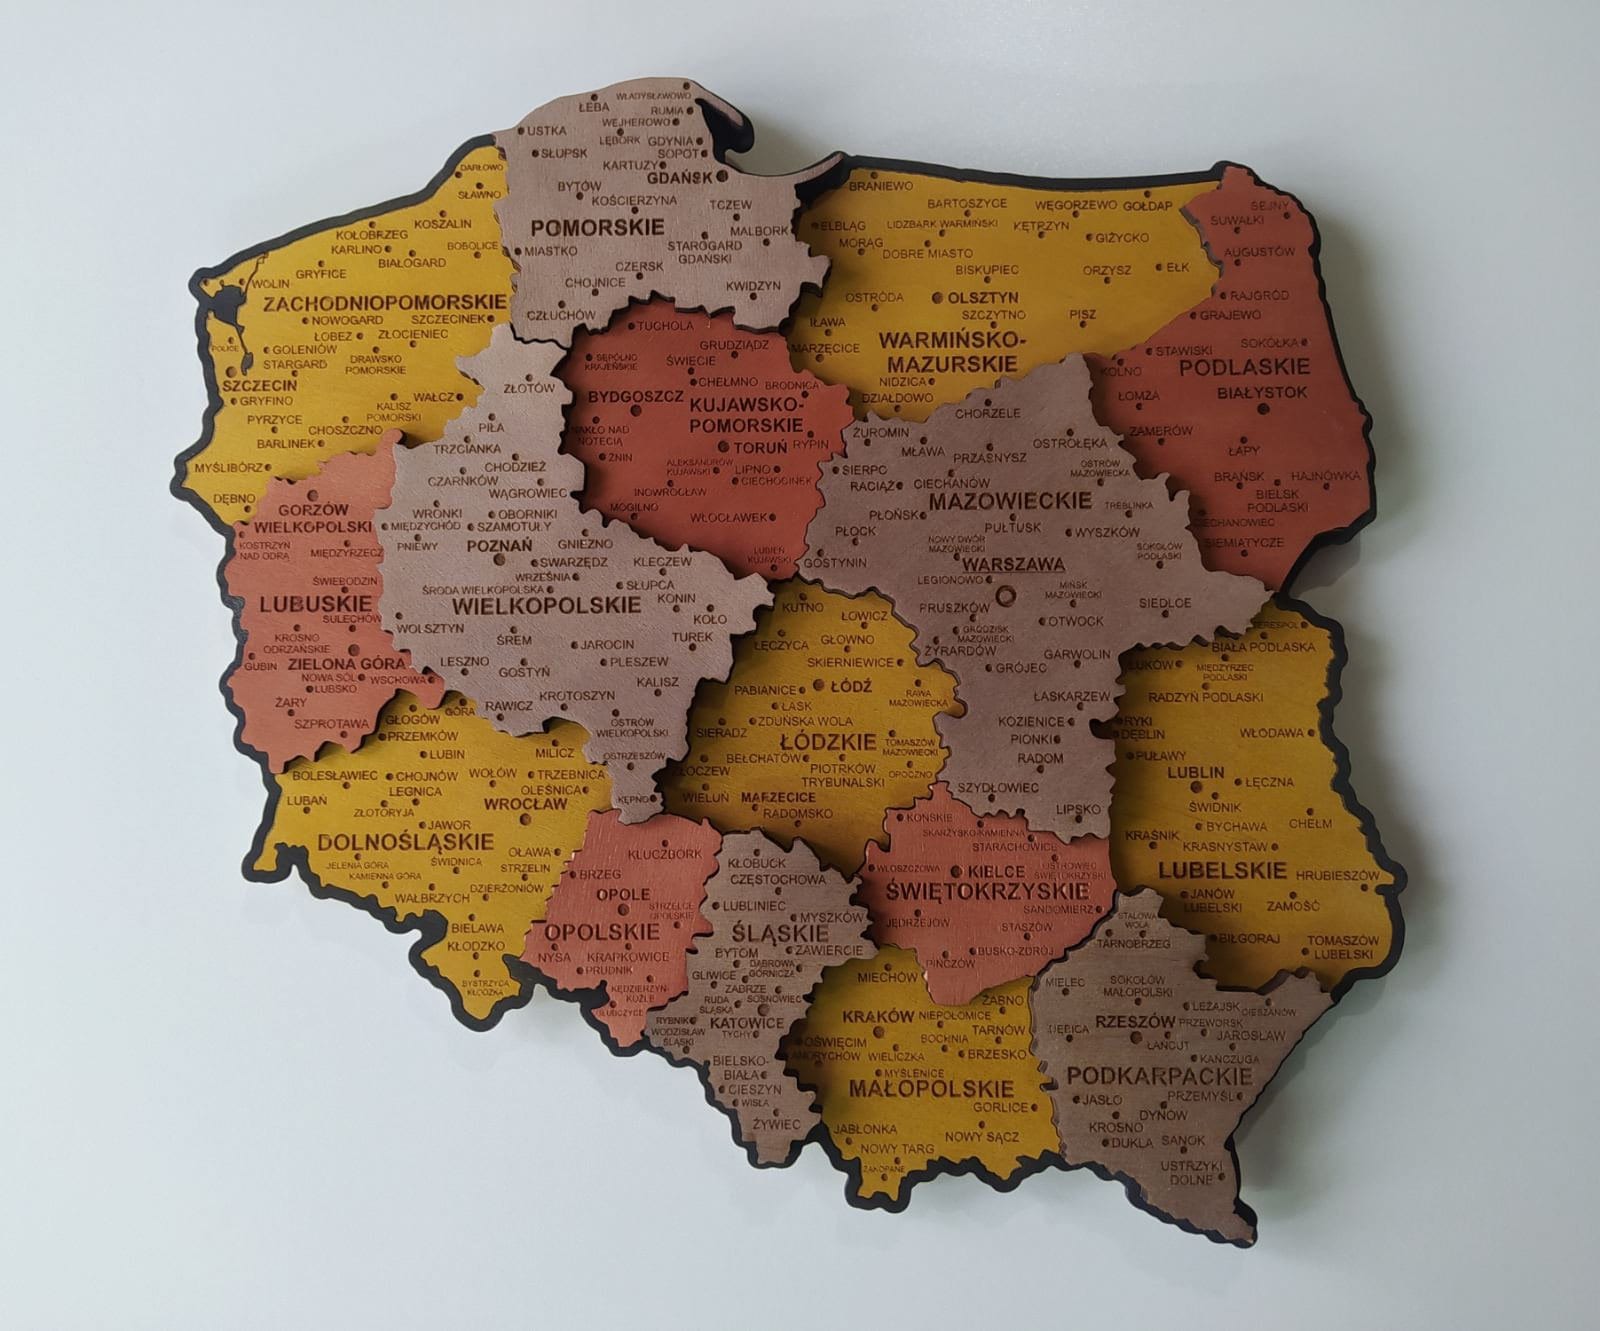 WŁADYSŁAWOWO
ŁEBA
RUMIA
WEJHEROWO
USTKA
LĘBORK
GDYNIA
SŁUPSK
SOPOT
KARTUZY
GDAŃSK
BYTÓW
KOŚCIERZYNA
TCZEW
POMORSKIE
MALBORK
MIASTKO
STAROGARD
GDAŃSKI
CZERSK
CHOJNICE
KWIDZYN
CZŁUCHÓW
DARŁOWO
SŁAWNO
KOSZALIN
KOŁOBRZEG
KARLINO
BOBOLICE
BIAŁOGARD
GRYFICE
WOLIN
ZACHODNIOPOMORSKIE
NOWOGARD
SZCZECINEK
ŁOBEZ
ZŁOCIENIEC
POLICE
GOLENIÓW
STARGARD
DRAWSKO
POMORSKIE
SZCZECIN
GRYFINO
WAŁCZ
KALISZ
POMORSKI
PYRZYCE
CHOSZCZNO
BARLINEK
MYŚLIBÓRZ
DĘBNO
BRANIEWO
BARTOSZYCE
WĘGORZEWO
GOŁDAP
ELBLĄG
LIDZBARK WARMIŃSKI
KĘTRZYN
GIŻYCKO
MORĄG
DOBRE MIASTO
BISKUPIEC
ORZYSZ
EŁK
OSTRÓDA
OLSZTYN
SZCZYTNO
PISZ
IŁAWA
MARZĘCICE
WARMIŃSKO-
MAZURSKIE
NIDZICA
DZIAŁDOWO
SEJNY
SUWAŁKI
AUGUSTÓW
RAJGRÓD
GRAJEWO
STAWISKI
SOKÓŁKA
KOLNO
PODLASKIE
ŁOMŻA
BIAŁYSTOK
ZAMBRÓW
ŁAPY
BRAŃSK
HAJNÓWKA
BIELSK
PODLASKI
CIECHANOWIEC
SIEMIATYCZE
TUCHOLA
GRUDZIĄDZ
SĘPÓLNO
KRAJEŃSKIE
ŚWIECIE
CHEŁMNO
BRODNICA
BYDGOSZCZ
KUJAWSKO-
POMORSKIE
NAKŁO NAD
NOTECIĄ
TORUŃ
RYPIN
ŻNIN
ALEKSANDRÓW
KUJAWSKI
LIPNO
CIECHOCINEK
INOWROCŁAW
MOGILNO
WŁOCŁAWEK
LUBIEŃ
KUJAWSKI
ZŁOTÓW
PIŁA
TRZCIANKA
CHODZIEŻ
CZARNKÓW
WĄGROWIEC
WRONKI
OBORNIKI
MIĘDZYCHÓD
SZAMOTUŁY
PNIEWY
POZNAŃ
GNIEZNO
SWARZĘDZ
KLECZEW
WRZEŚNIA
ŚRODA WIELKOPOLSKA
SŁUPCA
WIELKOPOLSKIE
KONIN
KOŁO
WOLSZTYN
ŚREM
JAROCIN
TUREK
LESZNO
GOSTYŃ
PLESZEW
KROTOSZYN
KALISZ
RAWICZ
OSTRÓW
WIELKOPOLSKI
OSTRZESZÓW
KĘPNO
GORZÓW
WIELKOPOLSKI
KOSTRZYN
NAD ODRĄ
MIĘDZYRZECZ
ŚWIEBODZIN
LUBUSKIE
SULECHÓW
KROSNO
ODRZAŃSKIE
GUBIN
ZIELONA GÓRA
NOWA SÓL
WSCHOWA
LUBSKO
ŻARY
SZPROTAWA
CHORZELE
ŻUROMIN
MŁAWA
PRZASNYSZ
OSTROŁĘKA
SIERPC
OSTRÓW
MAZOWIECKA
RACIĄŻ
CIECHANÓW
MAZOWIECKIE
TREBLINKA
PŁOŃSK
PUŁTUSK
WYSZKÓW
PŁOCK
NOWY DWÓR
MAZOWIECKI
SOKOŁÓW
PODLASKI
GOSTYNIN
WARSZAWA
LEGIONOWO
MIŃSK
MAZOWIECKI
PRUSZKÓW
SIEDLCE
OTWOCK
GRODZISK
MAZOWIECKI
ŻYRARDÓW
GRÓJEC
GARWOLIN
ŁASKARZEW
KOZIENICE
PIONKI
RADOM
SZYDŁOWIEC
LIPSKO
KUTNO
ŁOWICZ
ŁĘCZYCA
GŁOWNO
SKIERNIEWICE
PABIANICE
ŁÓDŹ
RAWA
MAZOWIECKA
ŁASK
ZDUŃSKA WOLA
SIERADZ
ŁÓDZKIE
TOMASZÓW
MAZOWIECKI
BEŁCHATÓW
PIOTRKÓW
TRYBUNALSKI
OPOCZNO
ZŁOCZEW
WIELUŃ
MARZECICE
RADOMSKO
TERESPOL
BIAŁA PODLASKA
ŁUKÓW
MIĘDZYRZEC
PODLASKI
RADZYŃ PODLASKI
RYKI
DĘBLIN
WŁODAWA
PUŁAWY
LUBLIN
ŁĘCZNA
ŚWIDNIK
BYCHAWA
CHEŁM
KRAŚNIK
KRASNYSTAW
LUBELSKIE
HRUBIESZÓW
JANÓW
LUBELSKI
ZAMOŚĆ
BIŁGORAJ
TOMASZÓW
LUBELSKI
GŁOGÓW
GÓRA
PRZEMKÓW
LUBIN
MILICZ
BOLESŁAWIEC
CHOJNÓW
WOŁÓW
TRZEBNICA
LEGNICA
OLEŚNICA
LUBAŃ
ZŁOTORYJA
WROCŁAW
JAWOR
DOLNOŚLĄSKIE
OŁAWA
JELENIA GÓRA
ŚWIDNICA
STRZELIN
KAMIENNA GÓRA
DZIERŻONIÓW
WAŁBRZYCH
BIELAWA
KŁODZKO
BYSTRZYCA
KŁODZKA
KLUCZBORK
BRZEG
OPOLE
STRZELCE
OPOLSKIE
OPOLSKIE
NYSA
KRAPKOWICE
PRUDNIK
KĘDZIERZYN-
KOŹLE
GŁUBCZYCE
KŁOBUCK
CZĘSTOCHOWA
LUBLINIEC
MYSZKÓW
ŚLĄSKIE
BYTOM
ZAWIERCIE
DĄBROWA
GÓRNICZA
GLIWICE
ZABRZE
RUDA
ŚLĄSKA
SOSNOWIEC
RYBNIK
KATOWICE
TYCHY
WODZISŁAW
ŚLĄSKI
BIELSKO-
BIAŁA
CIESZYN
WISŁA
ŻYWIEC
KOŃSKIE
SKARŻYSKO-KAMIENNA
STARACHOWICE
WŁOSZCZOWA
KIELCE
OSTROWIEC
ŚWIĘTOKRZYSKI
ŚWIĘTOKRZYSKIE
SANDOMIERZ
JĘDRZEJÓW
STASZÓW
BUSKO-ZDRÓJ
PIŃCZÓW
MIECHÓW
ŻABNO
KRAKÓW
NIEPOŁOMICE
TARNÓW
OŚWIĘCIM
BOCHNIA
ANDRYCHÓW
WIELICZKA
BRZESKO
MYŚLENICE
MAŁOPOLSKIE
GORLICE
JABŁONKA
NOWY SĄCZ
NOWY TARG
ZAKOPANE
STALOWA
WOLA
TARNOBRZEG
MIELEC
SOKOŁÓW
MAŁOPOLSKI
LEŻAJSK
CIESZANÓW
DĘBICA
RZESZÓW
PRZEWORSK
JAROSŁAW
ŁAŃCUT
KAŃCZUGA
PODKARPACKIE
PRZEMYŚL
JASŁO
DYNÓW
KROSNO
DUKLA
SANOK
USTRZYKI
DOLNE